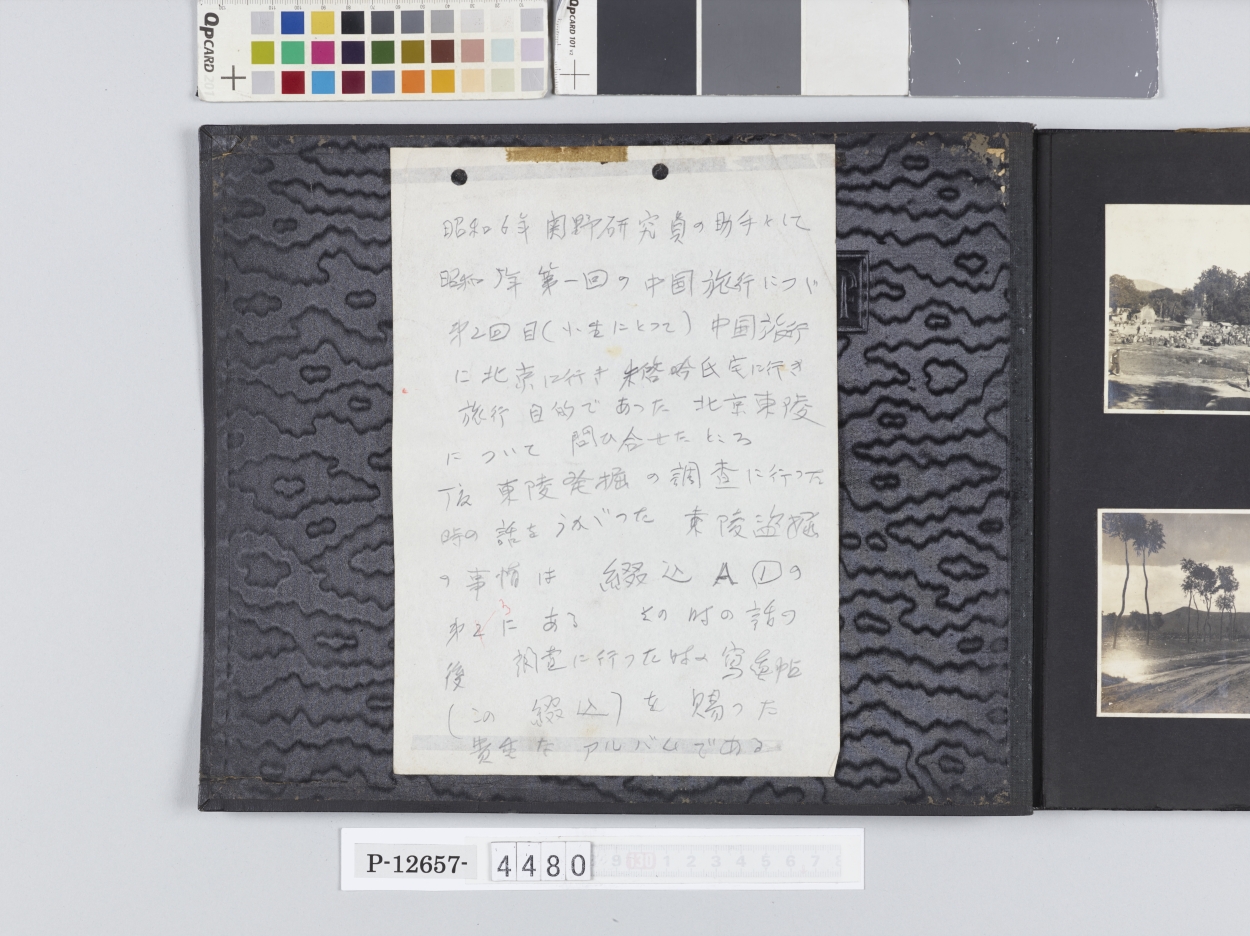 QPCARD 201
QPCARD 101
昭和6年 関野研究員の助手として
昭和5年 第一回の中国旅行につぐ
第2回目(小生にとって) 中国旅行
に北京に行き 朱啓吟氏宅に行き
旅行目的であった 北京東陵
について 問ひ合せた ところ
丁度 東陵発掘の調査に行った
時の話をうかがつた 東陵盗掘
の事情は 綴込 A ①の
第2 3 にある その時の話の
後 調査に行った時の写真帖
(この 綴込)を 賜った
貴重な アルバムである
P-12657- 4480